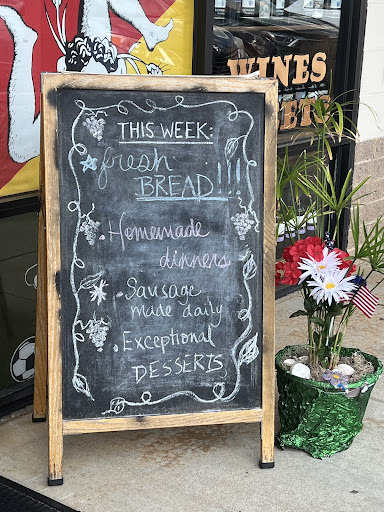 WINES
THIS WEEK:
fresh
BREAD!!!
• Homemade
dinners
• Sausage
made daily
• Exceptional
DESSERTS